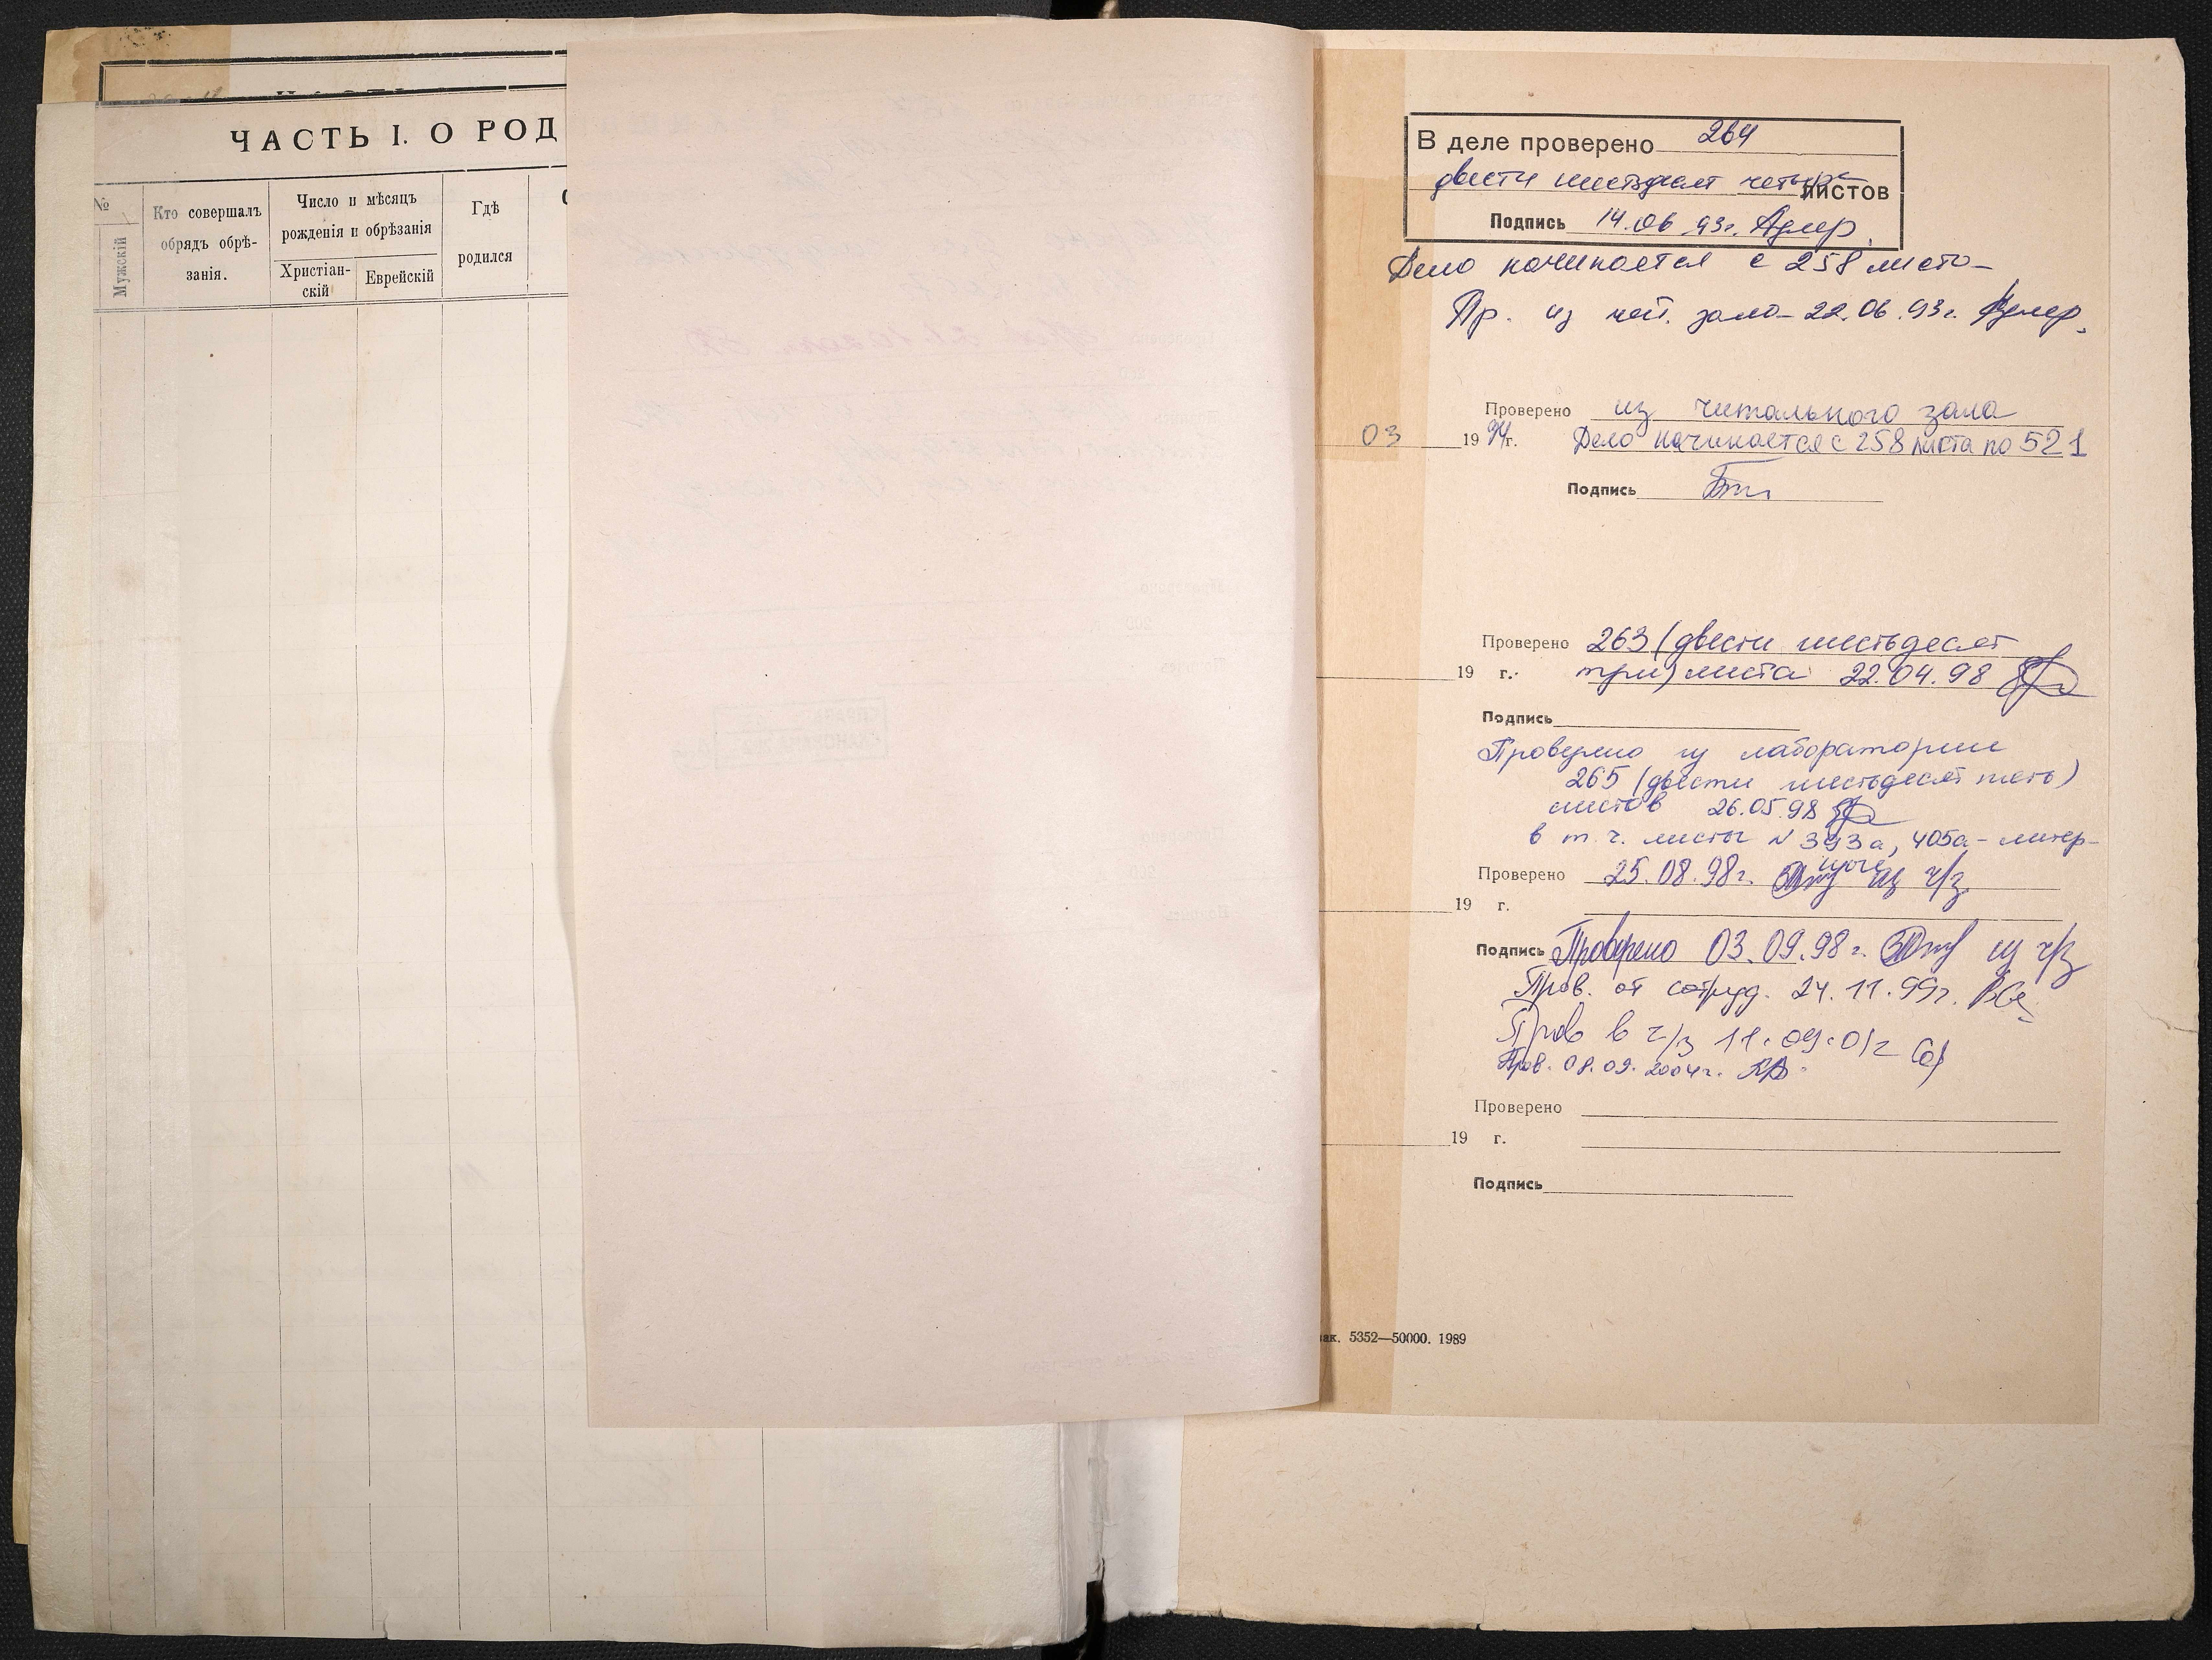 ЧАСТЬ I. О РОД
№
Мужскій
Кто совершалъ
обрядъ обрѣ-
занія.
Число и мѣсяцъ
рожденія и обрѣзанія
Христіан-
скій
Еврейскій
Гдѣ
родился
В деле проверено 264
двести шестьдесят четыре листов
Подпись 14.06.93г. Адлер.
Дело начинается с 258 листа
Пр. из чит. зала 22.06.93г. Адлер.
Проверено из читального зала
03 1994г. Дело начинается с 258 листа по 521
Подпись
Проверено 263 (двести шестьдесят
19 г. три) листа 22.04.98
Подпись
Проверено из лаборатории
265 (двести шестьдесят пять)
листов 26.05.98
в т.ч. листы N 393а, 405а - литер-
Проверено 25.08.98г. из ч/з
19 г.
Подпись Проверено 03.09.98г. из ч/з
Пров. от сотруд. 24.11.99г.
Пров в ч/з 11.09.01г
Пров. 08.09.2004г.
Проверено
19 г.
Подпись
зак. 5352—50000. 1989